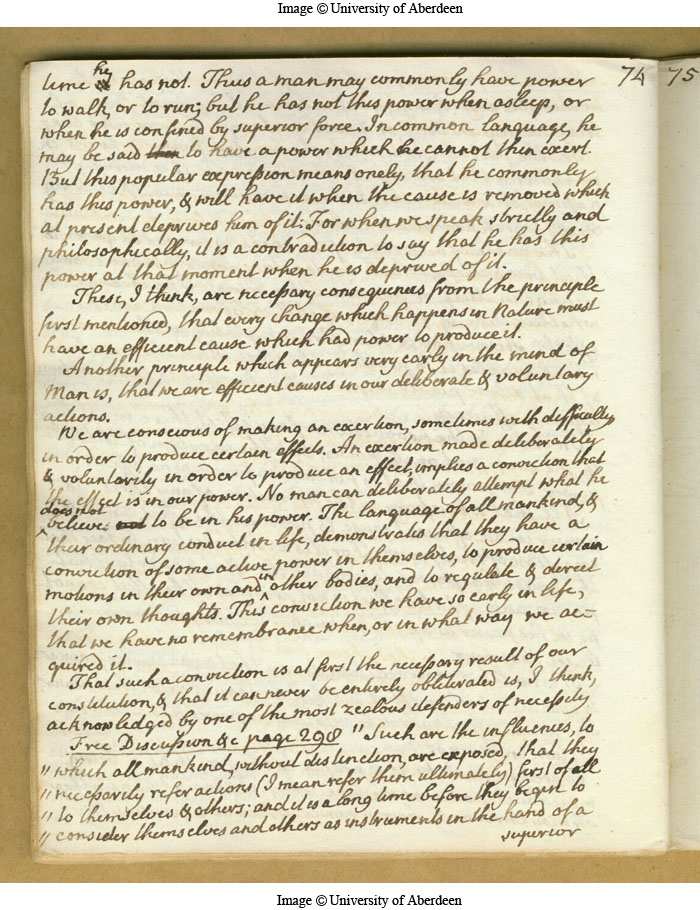 Image © University of Aberdeen
74
75
time he has not. Thus a man may commonly have power
to walk, or to run; but he has not this power when asleep, or
when he is confined by superior force. In common language, he
may be said then to have a power which he cannot then exert.
But this popular expression means onely, that he commonly
has this power, & will have it when the cause is removed which
at present deprives him of it. For when we speak strictly and
philosophically, it is a contradiction to say that he has this
power at that moment when he is deprived of it.
These, I think, are necessary consequences from the principle
first mentioned, that every change which happens in Nature must
have an efficient cause which had power to produce it.
Another principle which appears very early in the mind of
Man is, that we are efficient causes in our deliberate & voluntary
actions.
We are conscious of making an exertion, sometimes with difficulty,
in order to produce certain effects. An exertion made deliberately
& voluntarily in order to produce an effect, implies a conviction that
the effect is in our power. No man can deliberately attempt what he
does not
believe not to be in his power. The language of all mankind, &
their ordinary conduct in life, demonstrates that they have a
conviction of some active power in themselves, to produce certain
motions in their own and in other bodies, and to regulate & direct
their own thoughts. This conviction we have so early in life,
that we have no remembrance when, or in what way we ac=
quired it.
That such a conviction is at first the necessary result of our
constitution, & that it can never be entirely obliterated is, I think,
acknowledged by one of the most zealous defenders of necessity
Free Discussion &c page 298 " Such are the influences, to
" which all mankind, without distinction, are exposed, that they
" necessarily refer actions (I mean refer them ultimately) first of all
" to themselves & others; and it is a long time before they begin to
" consider themselves and others as instruments in the hand of a
superior
Image © University of Aberdeen